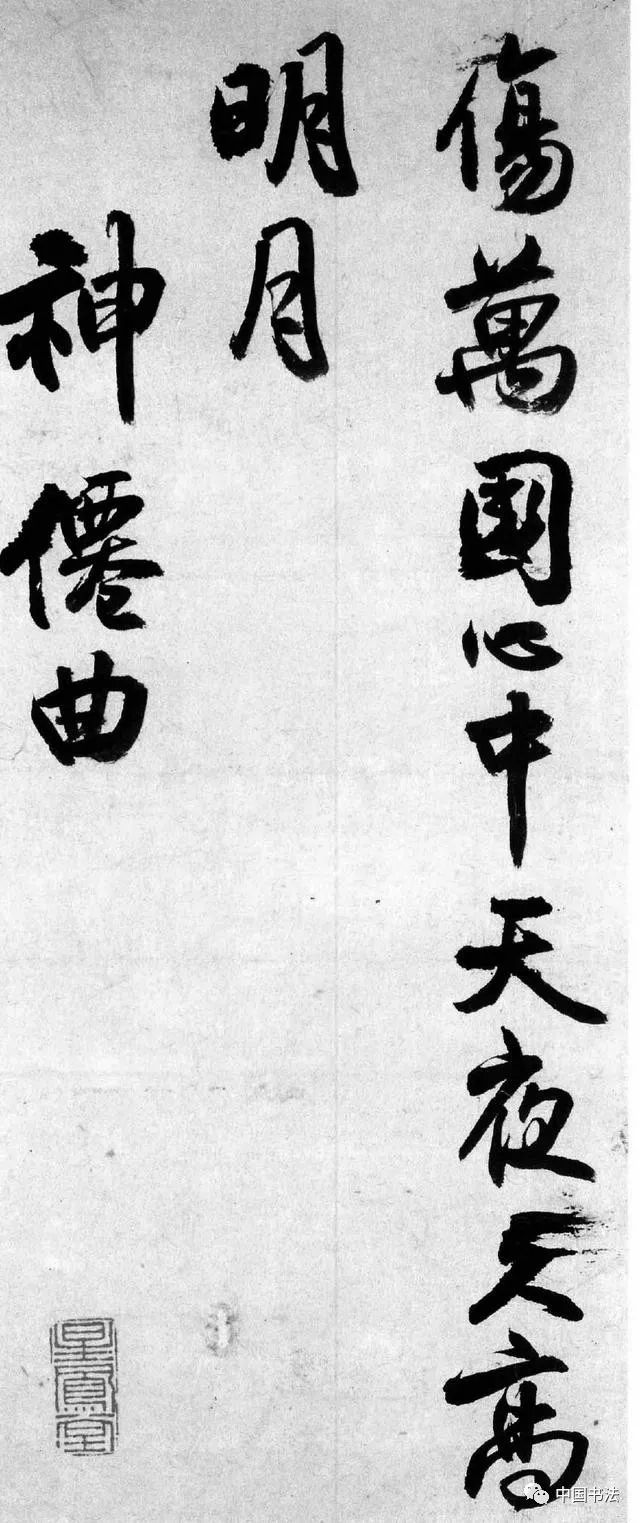 傷萬國心中天夜久高
明月
神僊曲
中国书法